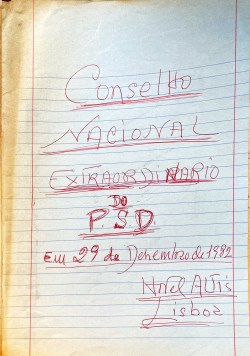 Conselho
NACIONAL
EXTRAORDINARIO
DO
P.S.D.
Em 29 de Dezembro de 1982
Hotel Altis
Lisboa